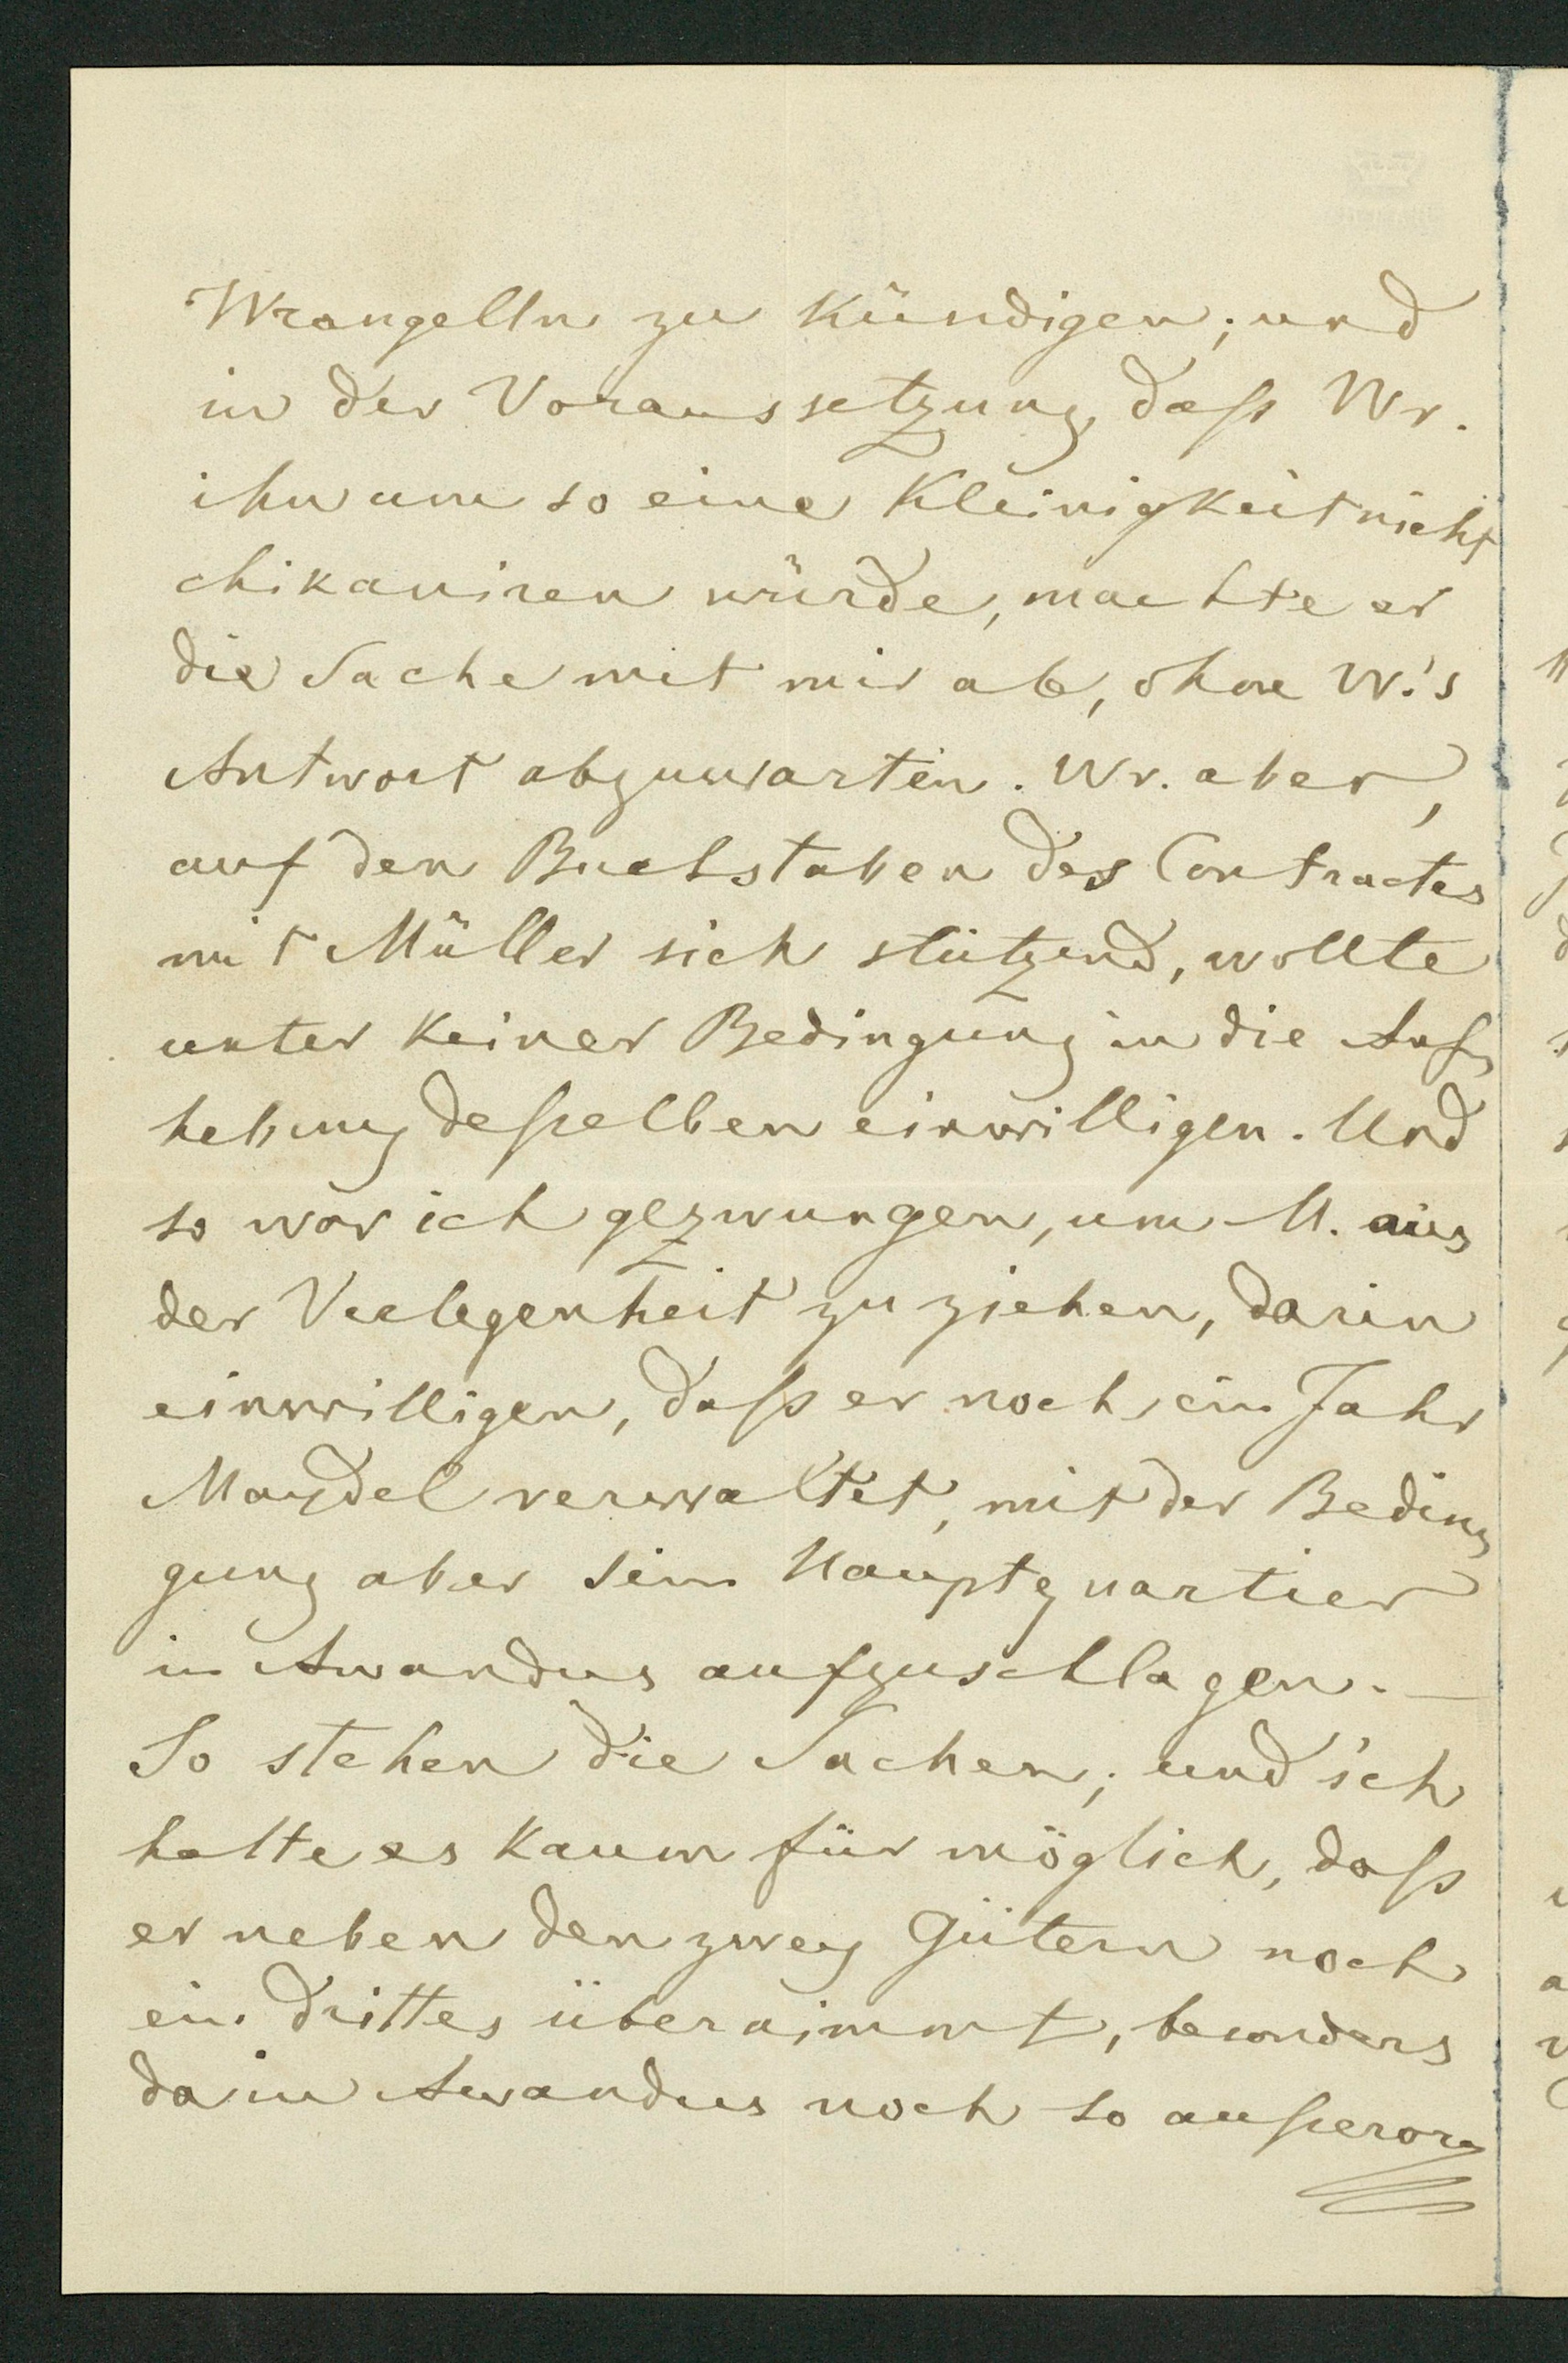 Wrangelln zu kündigen; und
in der Voraussetzung, daſs Wr.
ihn um so eine Kleinigkeit nicht
chikaniren würde, machte er
die Sache mit mir ab, ohne W.'s
Antwort abzuwarten. Wr. aber,
auf den Buchstaben des Contractes
mit Müller sich stützend, wollte
unter keiner Bedingung in die Auf-
hebung deſselben einwilligen. Und
so war ich gezwungen, um M. aus
der Verlegenheit zu ziehen, darin
einwilligen, daſs er noch ein Jahr
Maydel verwaltet, mit der Bedin-
gung aber sein Hauptquartier
in Awandus aufzuschlagen. —
So stehen die Sachen; und ich
halte es kaum für möglich, daſs
er neben den zwey Gütern noch
ein drittes übernimmt, besonders
da in Awandus noch so auſseror-